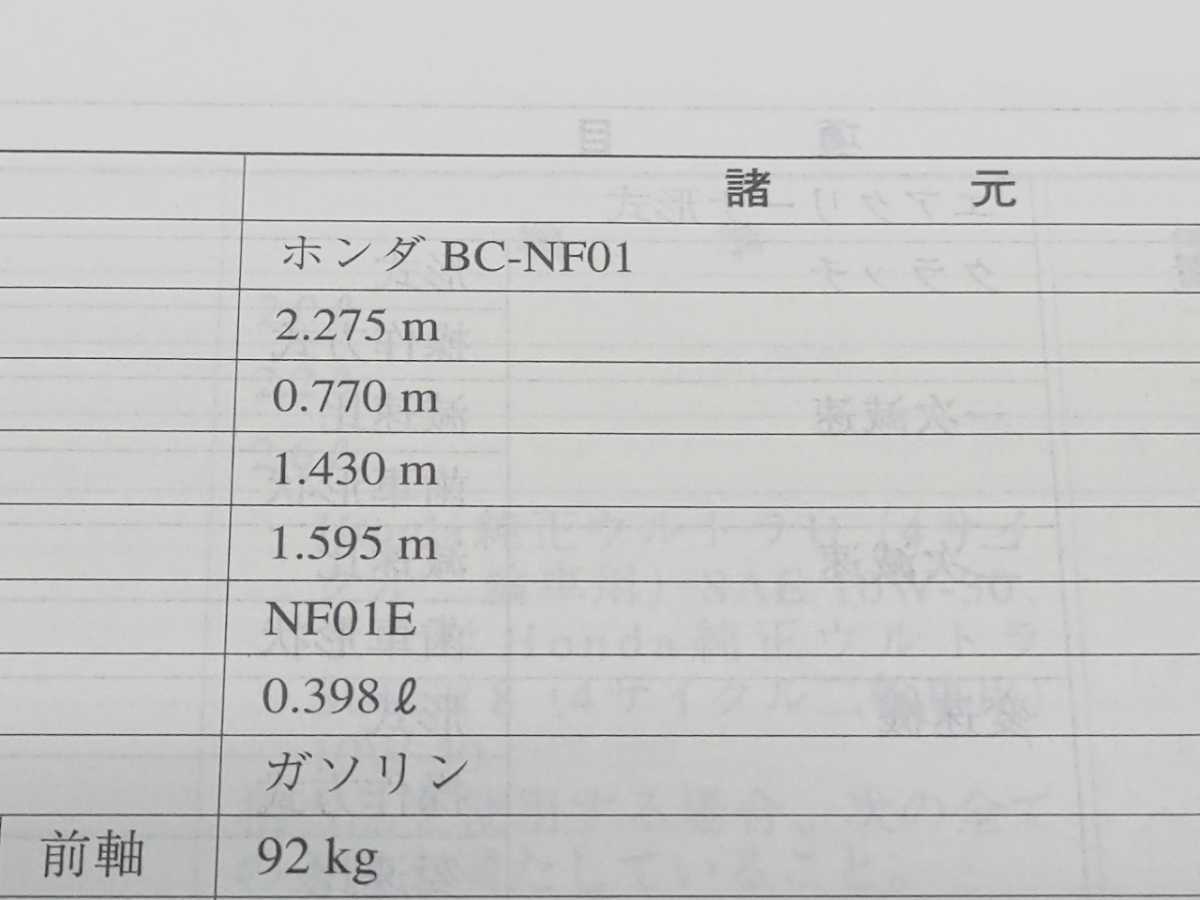 諸 元
ホンダ BC-NF01
2.275 m
0.770 m
1.430 m
1.595 m
NF01E
0.398 ℓ
ガソリン
前軸 92 kg